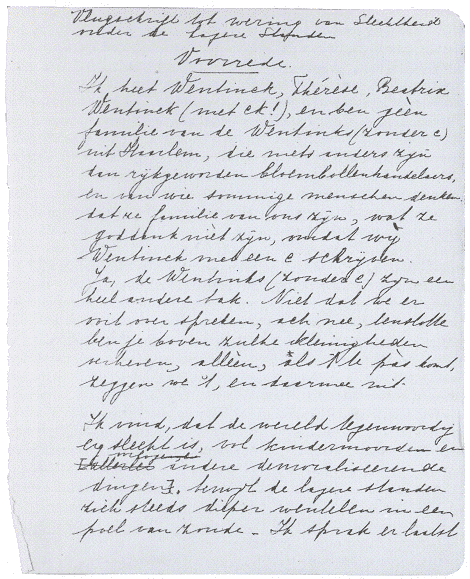 Vlugschrift tot wering van Slechtheid
onder de lagere Standen
Voorrede.
Ik heet Wentinck, Thérèse, Beatrix
Wentinck (met ck!), en ben géén
familie van de Wentinks (zonder c)
uit Haarlem, die niets anders zijn
dan rijkgeworden bloembollenhandelaars,
en van wie sommige menschen denken
dat ze familie van ons zijn, wat ze
goddank niet zijn, omdat wij
Wentinck met een c schrijven.
Ja, de Wentinks (zonder c) zijn een
heel andere tak. Niet dat we er
ooit over spreken, ach nee, tenslotte
ben je boven zulke kleinigheden
verheven, alléén, als 't te pas komt,
zeggen we 't, en daarmee uit.
Ik vind, dat de wereld tegenwoordig
erg slecht is, vol kindermoorden en
andere demoraliseerende
dingen, terwijl de lagere standen
zich steeds dieper wentelen in een
poel van zonde. - Ik sprak er laatst